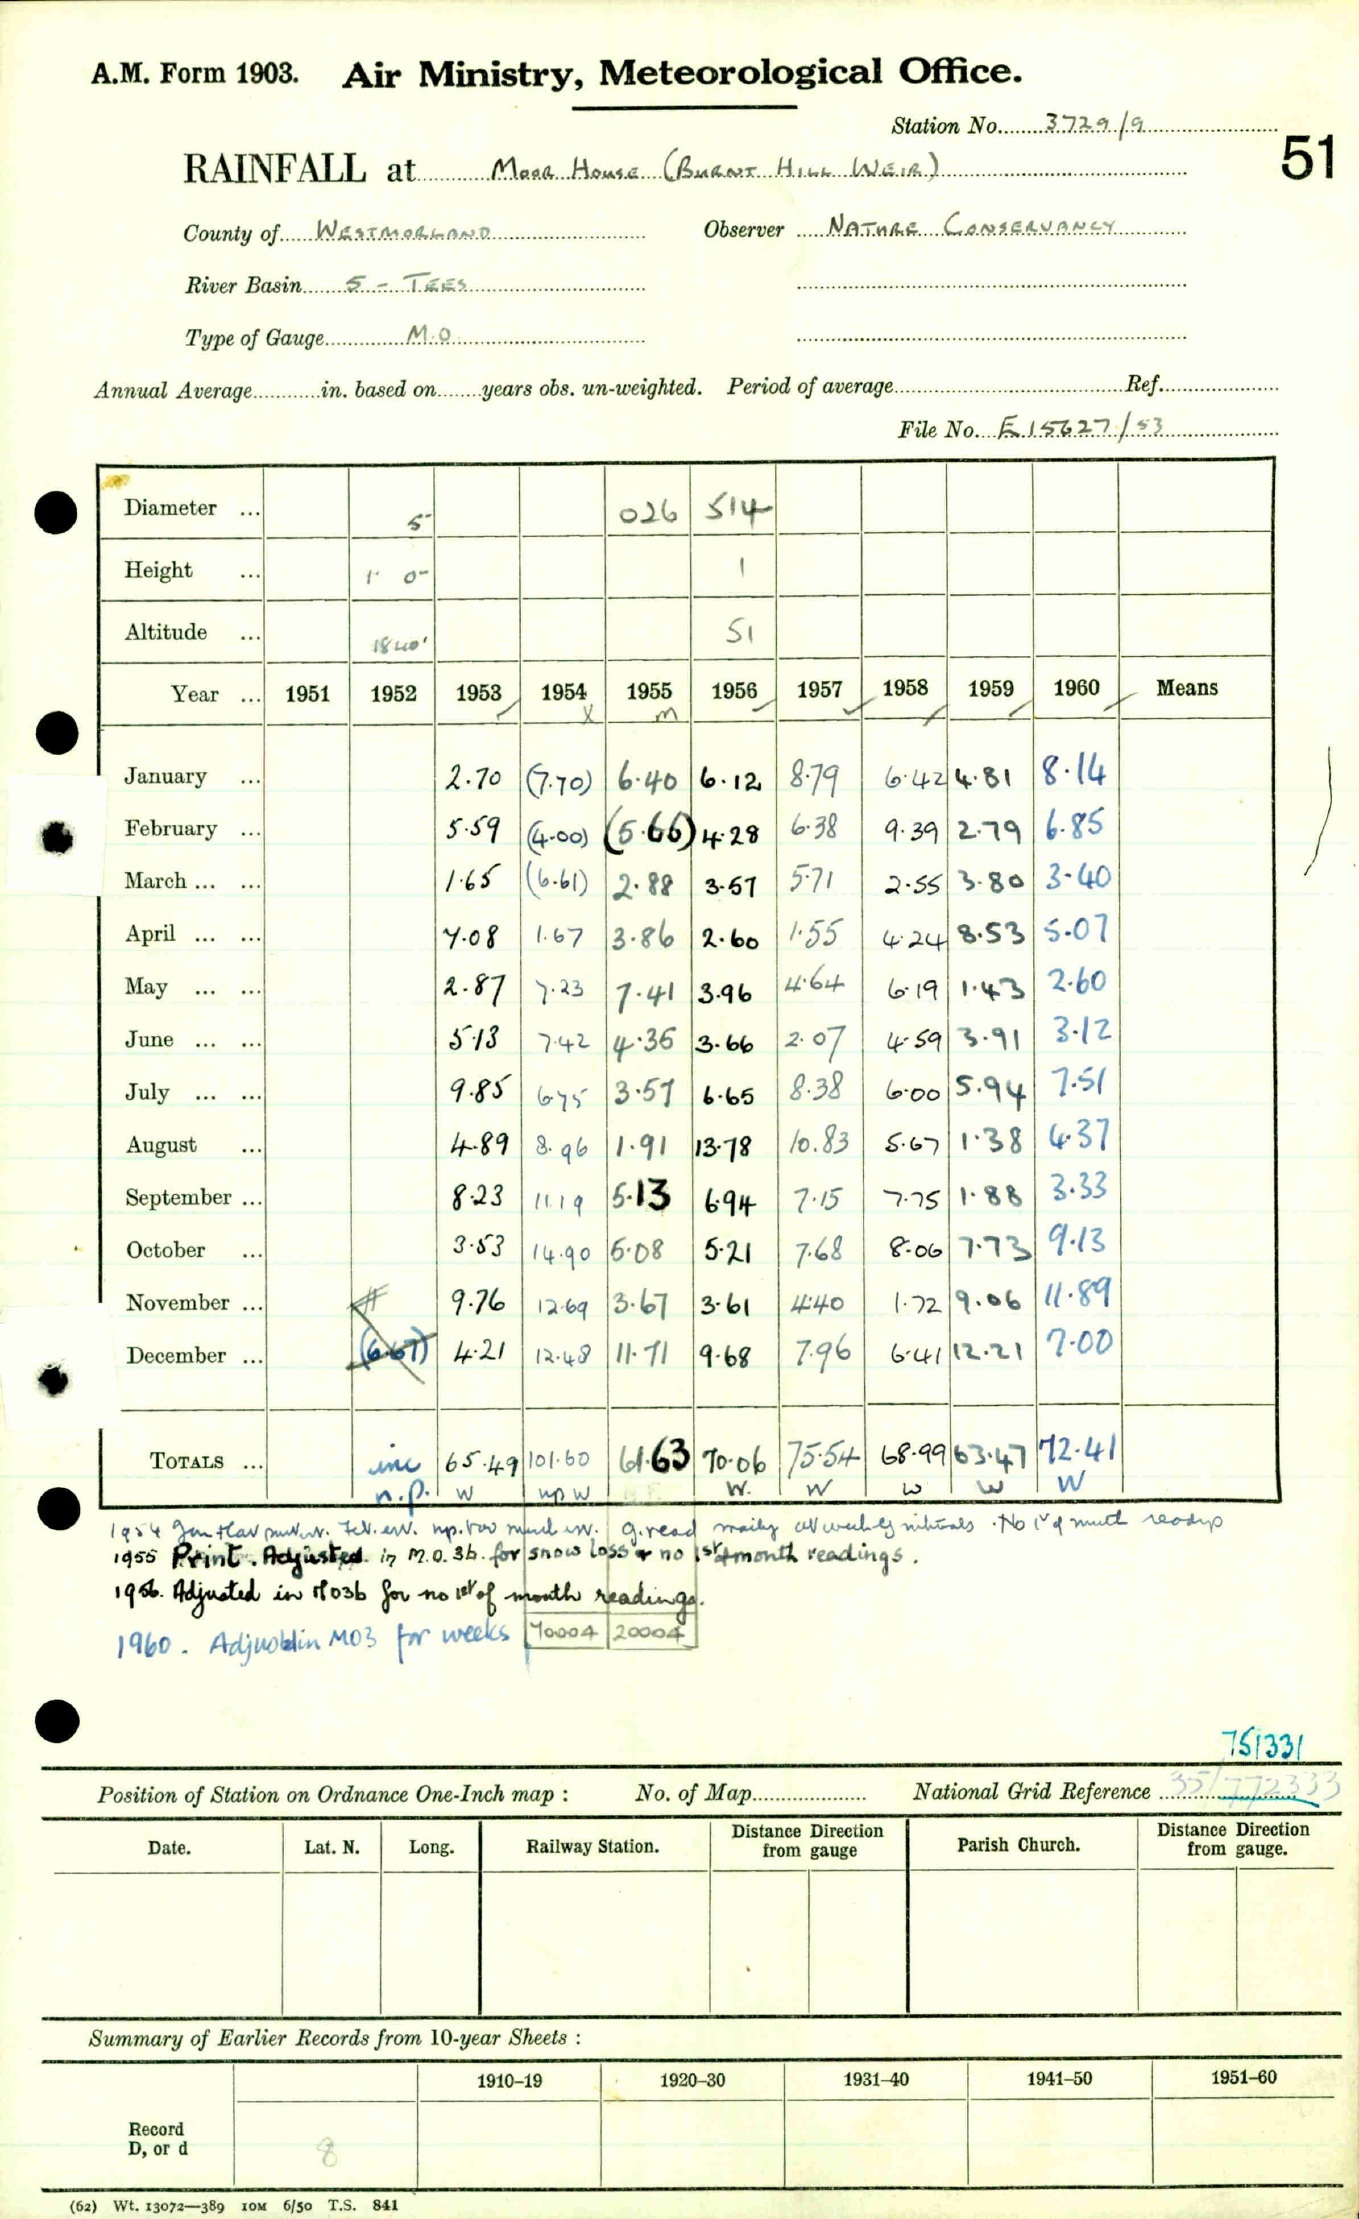 A.M. Form 1903. Air Ministry, Meteorological Office.
Station No. 3729/9
51
RAINFALL at Moor House (Burnt Hill Weir)
County of Westmorland Observer Nature Conservancy
River Basin 5 - Tees
Type of Gauge M.O
Annual Average in. based on years obs. un-weighted. Period of average Ref.
File No. E 15627/53
Diameter ... 5 026 514
Height ... 1' 0" 1
Altitude ... 1840' 51
Year ... 1951 1952 1953 1954 1955 1956 1957 1958 1959 1960 Means
x m
January ... 2.70 (7.70) 6.40 6.12 8.79 6.42 4.81 8.14
February ... 5.59 (4.00) (5.66) 4.28 6.38 9.39 2.79 6.85
March ... ... 1.65 (6.61) 2.88 3.57 5.71 2.55 3.80 3.40
April ... ... 7.08 1.67 3.86 2.60 1.55 4.24 8.53 5.07
May ... ... 2.87 7.23 7.41 3.96 4.64 6.19 1.43 2.60
June ... ... 5.13 7.42 4.35 3.66 2.07 4.59 3.91 3.12
July ... ... 9.85 6.75 3.57 6.65 8.38 6.00 5.94 7.51
August ... 4.89 8.96 1.91 13.78 10.83 5.67 1.38 4.37
September ... 8.23 11.19 5.13 6.94 7.15 7.75 1.88 3.33
October ... 3.53 14.90 5.08 5.21 7.68 8.06 7.73 9.13
November ... 9.76 12.69 3.67 3.61 4.40 1.72 9.06 11.89
December ... (6.67) 4.21 12.48 11.71 9.68 7.96 6.41 12.21 7.00
TOTALS ... inc 65.49 101.60 61.63 70.06 75.54 68.99 63.47 72.41
n.p. W np W W. W W W W
1954 Jan + Mar Feb. est. n.p. g. read mainly at weekly intervals. No 1st of month readings
1955 Print. Adjusted in M.O.3b. for snow loss + no 1st of month readings.
1956. Adjusted in M03b for no 1st of month readings.
1960. Adjusted in M03 for weeks 70004 20004
751331
Position of Station on Ordnance One-Inch map : No. of Map National Grid Reference 35/772333
Date. Lat. N. Long. Railway Station. Distance from Direction gauge Parish Church. Distance from Direction gauge.
Summary of Earlier Records from 10-year Sheets :
1910–19 1920–30 1931–40 1941–50 1951–60
Record
D, or d 8
(62) Wt. 13072—389 10M 6/50 T.S. 841